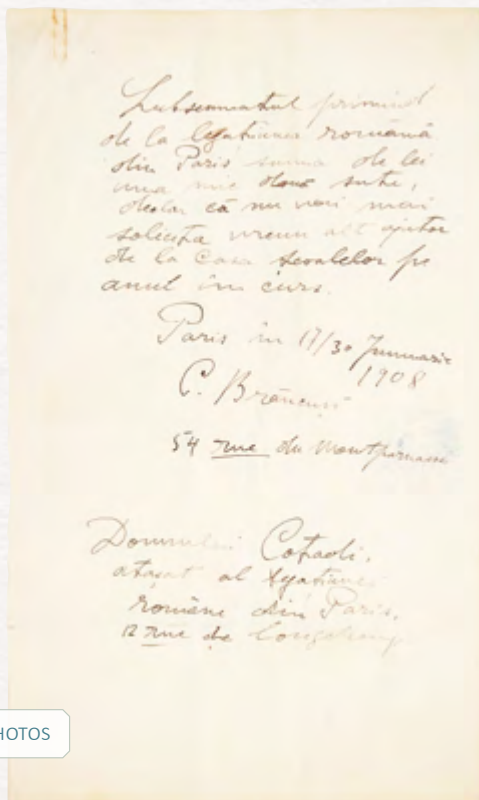 Subsemnatul primind
de la legatiunea română
din Paris suma de lei
una mie două sute,
declar că nu voi mai
solicita vreun alt ajutor
de la Casa Scoalelor pe
anul în curs.
Paris în 17/30 Januarie
1908
C. Brâncuși
54 rue du Montparnasse
Domnului
atașat al legatiunei
române din Paris.
12 rue de
HOTOS